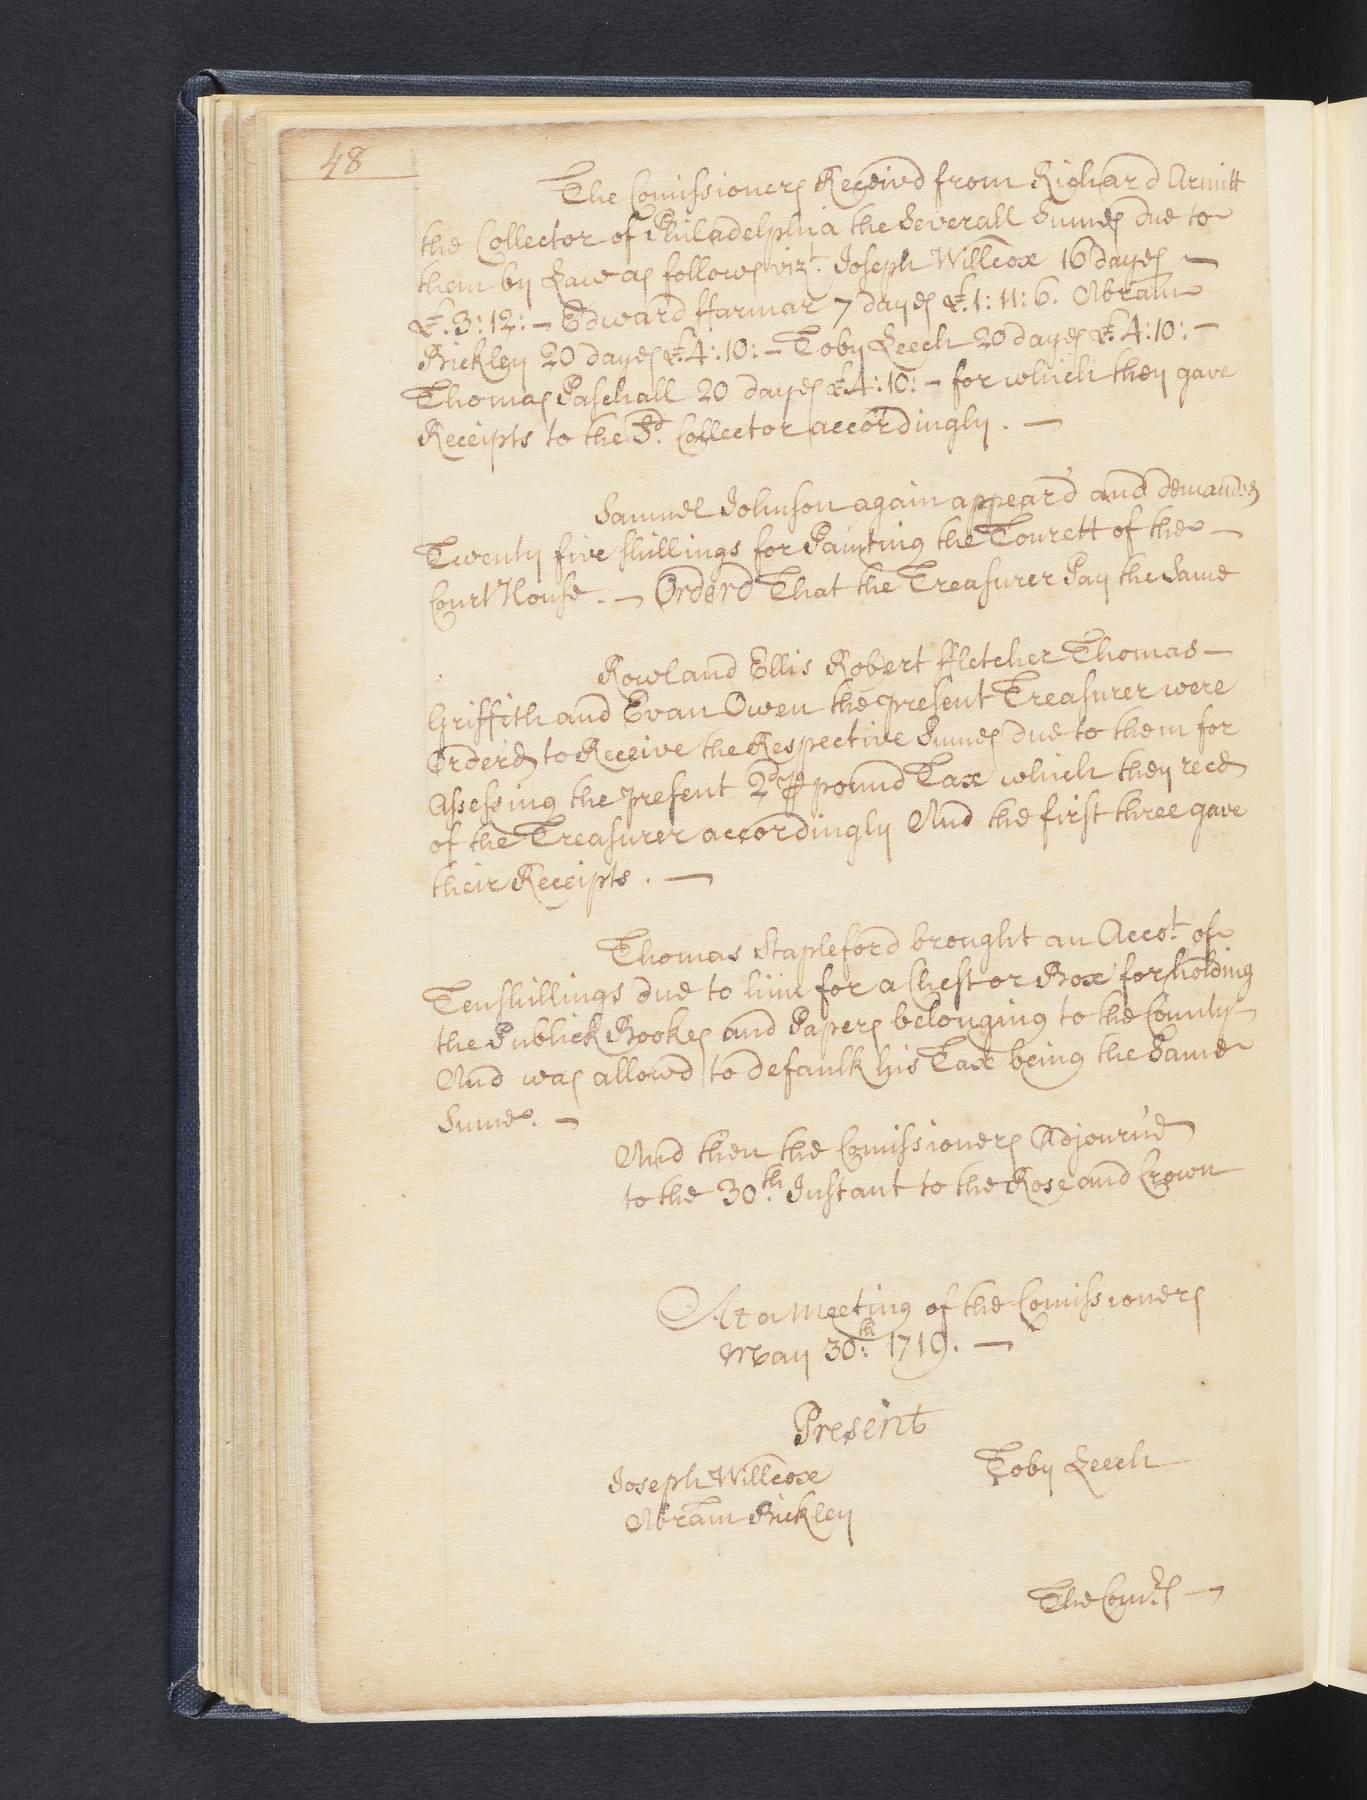 48
The Comissioners Received from Richard Armitt
the Collector of Philadelphia the Severall Summes due to
them by Law as followes vizt. Joseph Willcox 16 dayes —
£.3:12:— Edward ffarmar 7 dayes £.1:11:6. Abram
Bickley 20 dayes £.4:10:— Toby Leech 20 dayes £.4:10:—
Thomas Paschall 20 dayes £4:10:— for which they gave
Receipts to the Sd. Collector accordingly. —
Samuel Johnson again appear'd and demanded
Twenty five shillings for Painting the Tourett of the —
Court House. — Orderd That the Treasurer Pay the Same
Rowland Ellis Robert ffletcher Thomas —
Griffith and Evan Owen the present Treasurer were
Order'd to Receive the Respective Summes due to them for
Assessing the present 2d ⅌ pound Tax which they reced
of the Treasurer accordingly And the first three gave
their Receipts. —
Thomas Stapleford brought an Accot. of
Ten shillings due to him for a Chest or Box for holding
the Publick Bookes and Papers belonging to the County —
And was allowd to defaulk his Tax being the Same
Summe. —
And then the Comissioners Adjourn'd
to the 30th. Instant to the Rose and Crown
At a Meeting of the Comissioners
May 30th: 1719. —
Present
Joseph Willcox
Toby Leech
Abram Bickley
The Comrs. —